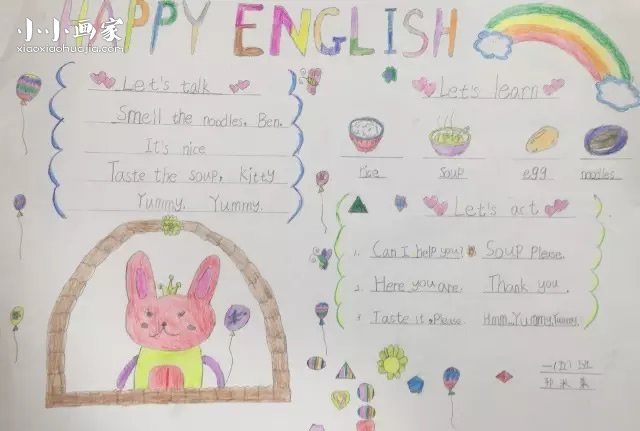 HAPPY ENGLISH
小小画家
xiaoxiaohuajia.com
Let's talk
Smell the noodles, Ben.
It's nice
Taste the soup, Kitty
Yummy, Yummy.
Let's learn
rice
soup
egg
noodles
Let's act
1. Can I help you? Soup Please.
2. Here you are. Thank you.
3 Taste it, Please. Hmm...Yummy, Yummy.
一(五)班